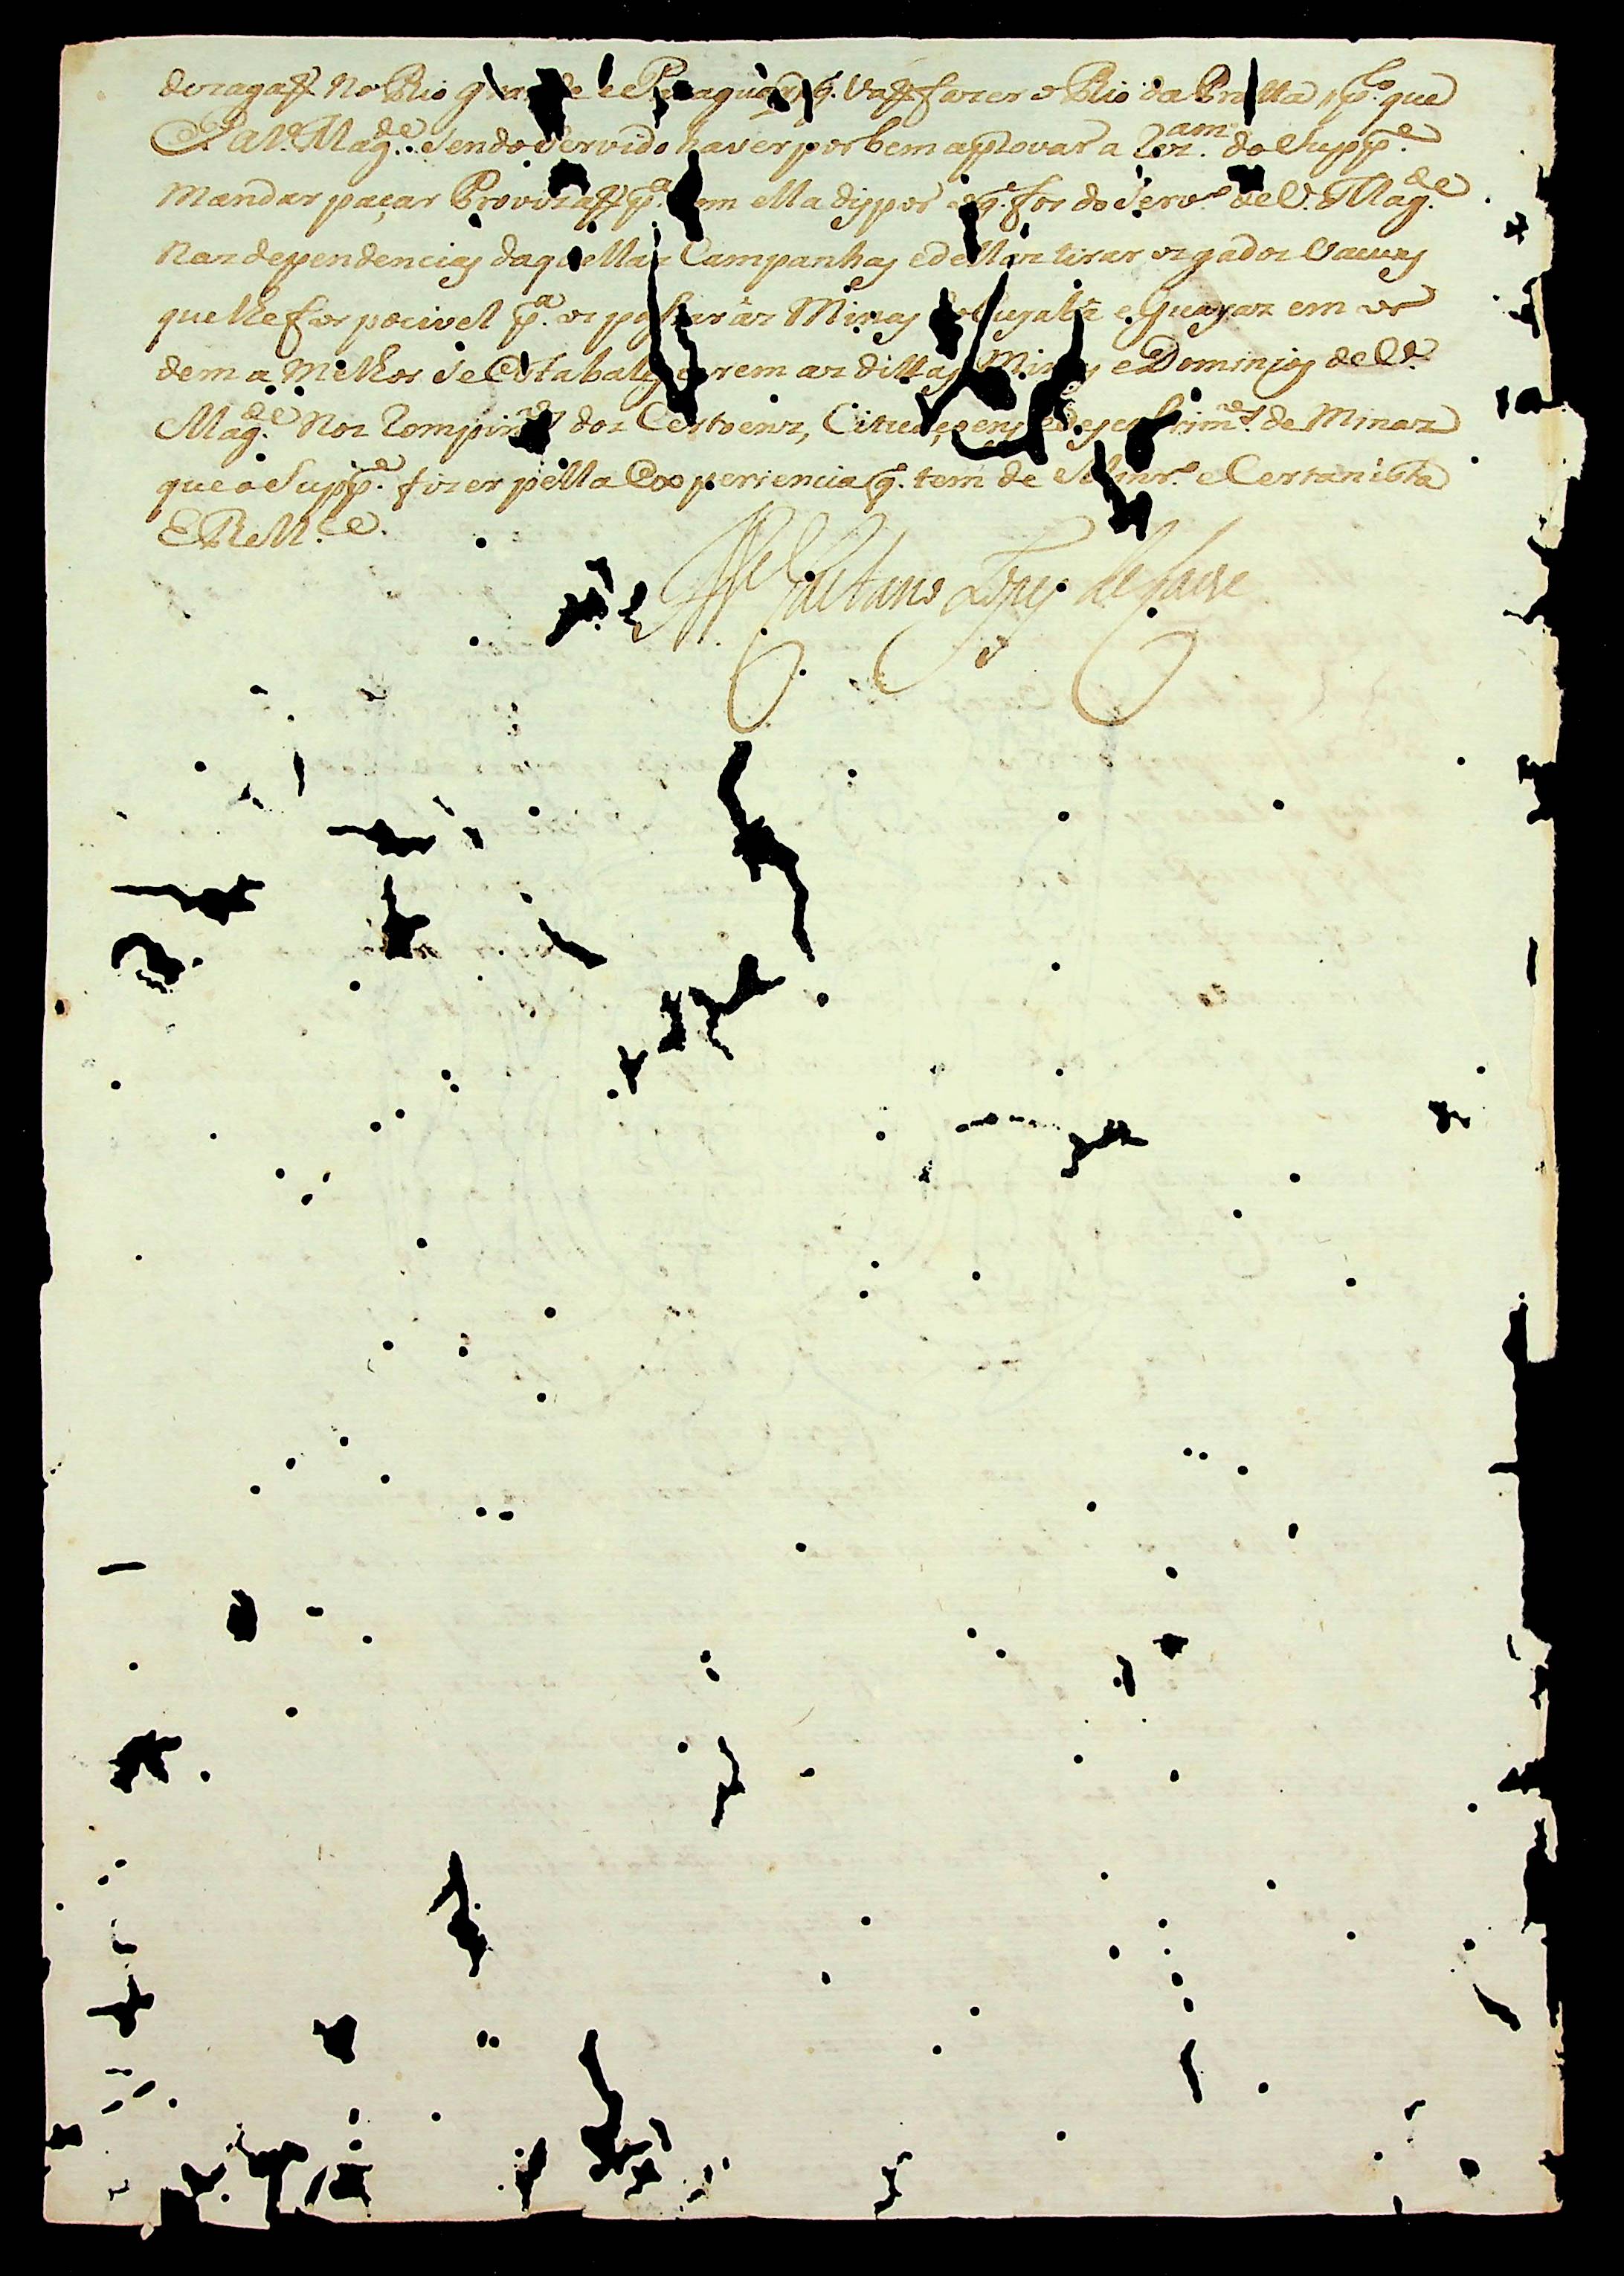 dezagaß No Rio grande e Paraguay q. vaß fazer o Rio da Pratta, p.lo que
P. a V. Mag.de Sendo Servido haver por bem aprovar a do Supp.e
Mandar paçar Provizaß p.a em ella dispor o q. for do Serv.o de V. Mag.de
Nas dependencias daquellas Campanhas e dellas tirar os gados Vacuns
que lhe for pocivel p.a os paßar ás Minas do Cuyabá e Guayaz em or
dem a Melhor Se Estabalecerem as dittas Minas e Dominios de V.
Mag.de Nos Rompim.tos dos Certoens, e descobrim.tos de Minas
que o Supp.e fizer pella Experiencia q. tem de e Certanista
E R M.ce
Caetano Lopes